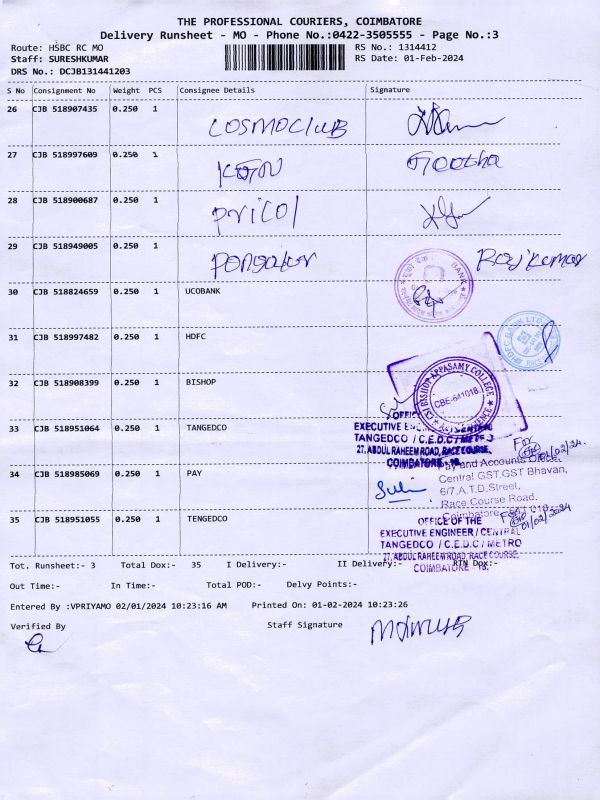 THE PROFESSIONAL COURIERS, COIMBATORE
Delivery Runsheet - MO - Phone No.:0422-3505555 - Page No.:3
Route: HSBC RC MO RS No.: 1314412
Staff: SURESHKUMAR RS Date: 01-Feb-2024
DRS No.: DCJB131441203
S No Consignment No Weight PCS Consignee Details Signature
26 CJB 518907435 0.250 1
COSMOCLUB
27 CJB 518997609 0.250 1
Geetha
28 CJB 518900687 0.250 1
Pricol
29 CJB 518949005 0.250 1
Rajkumar
30 CJB 518824659 0.250 1 UCOBANK
BANK
31 CJB 518997482 0.250 1 HDFC
HDFC BANK LTD
RACE
32 CJB 518908399 0.250 1 BISHOP
CSI BISHOP APPASAMY COLLEGE
CBE-641018
33 CJB 518951064 0.250 1 TANGEDCO
EXECUTIVE
TANGEDCO / C.E.D.C / METRO
27, ABDUL RAHEEM ROAD, RACE COURSE,
COIMBATORE 18.
01/02/24
34 CJB 518985069 0.250 1 PAY
Pay and Accounts Office
Central GST,GST Bhavan,
6/7,A.T.D.Street,
Race Course Road,
Coimbatore
35 CJB 518951055 0.250 1 TENGEDCO
01/02/2024
OFFICE OF THE
EXECUTIVE ENGINEER / CENTRAL
TANGEDCO / C.E.D.C / METRO
27, ABDUL RAHEEM ROAD, RACE COURSE,
COIMBATORE 18.
Tot. Runsheet:- 3 Total Dox:- 35 I Delivery:- II Delivery:- RTN Dox:-
Out Time:- In Time:- Total POD:- Delvy Points:-
Entered By :VPRIYAMO 02/01/2024 10:23:16 AM Printed On: 01-02-2024 10:23:26
Verified By Staff Signature